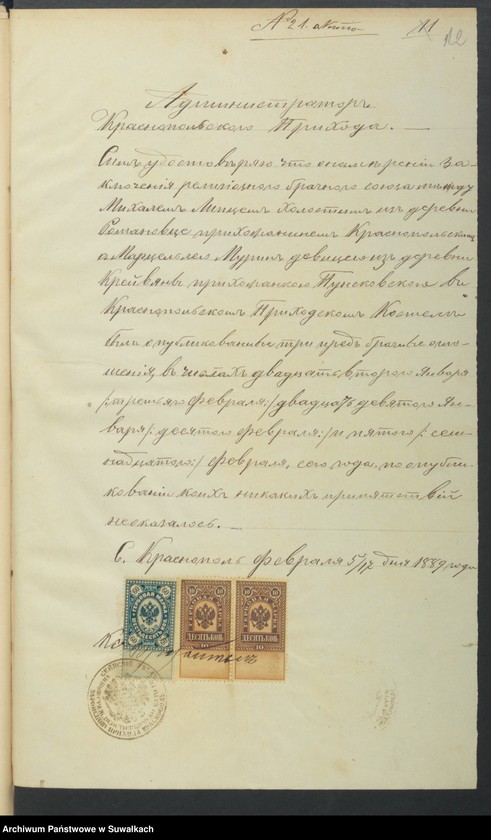 № 21. 
11
12
Администраторъ
Краснопольскаго Прихода. —
Симъ удостовѣряю что о намѣреніи за-
ключенія религіознаго брачнаго союза между
Михаломъ холостымъ изъ деревни
Романовце прихожаниномъ Краснопольскимъ
а Марцеллею дѣвицею изъ деревни
прихожанкою Пунсковскою въ
Краснопольскомъ Приходскомъ Костелѣ
были опубликованы три предъ брачные огло-
шенія, въ числахъ двадцать второго Января
/:третьяго Февраля:/ двадцать девятого Ян-
варя /:десятого Февраля:/ и пятого /:сем-
надцатого:/ Февраля, сего года, по опубли-
кованіи коихъ никакихъ препятствій
неоказалось. —
С. Краснополь Февраля 5/17 дня 1889 года
60 60
60 60
10 10 10 10
ДЕСЯТЬ КОП. ДЕСЯТЬ КОП.
10 10
Archiwum Państwowe w Suwałkach